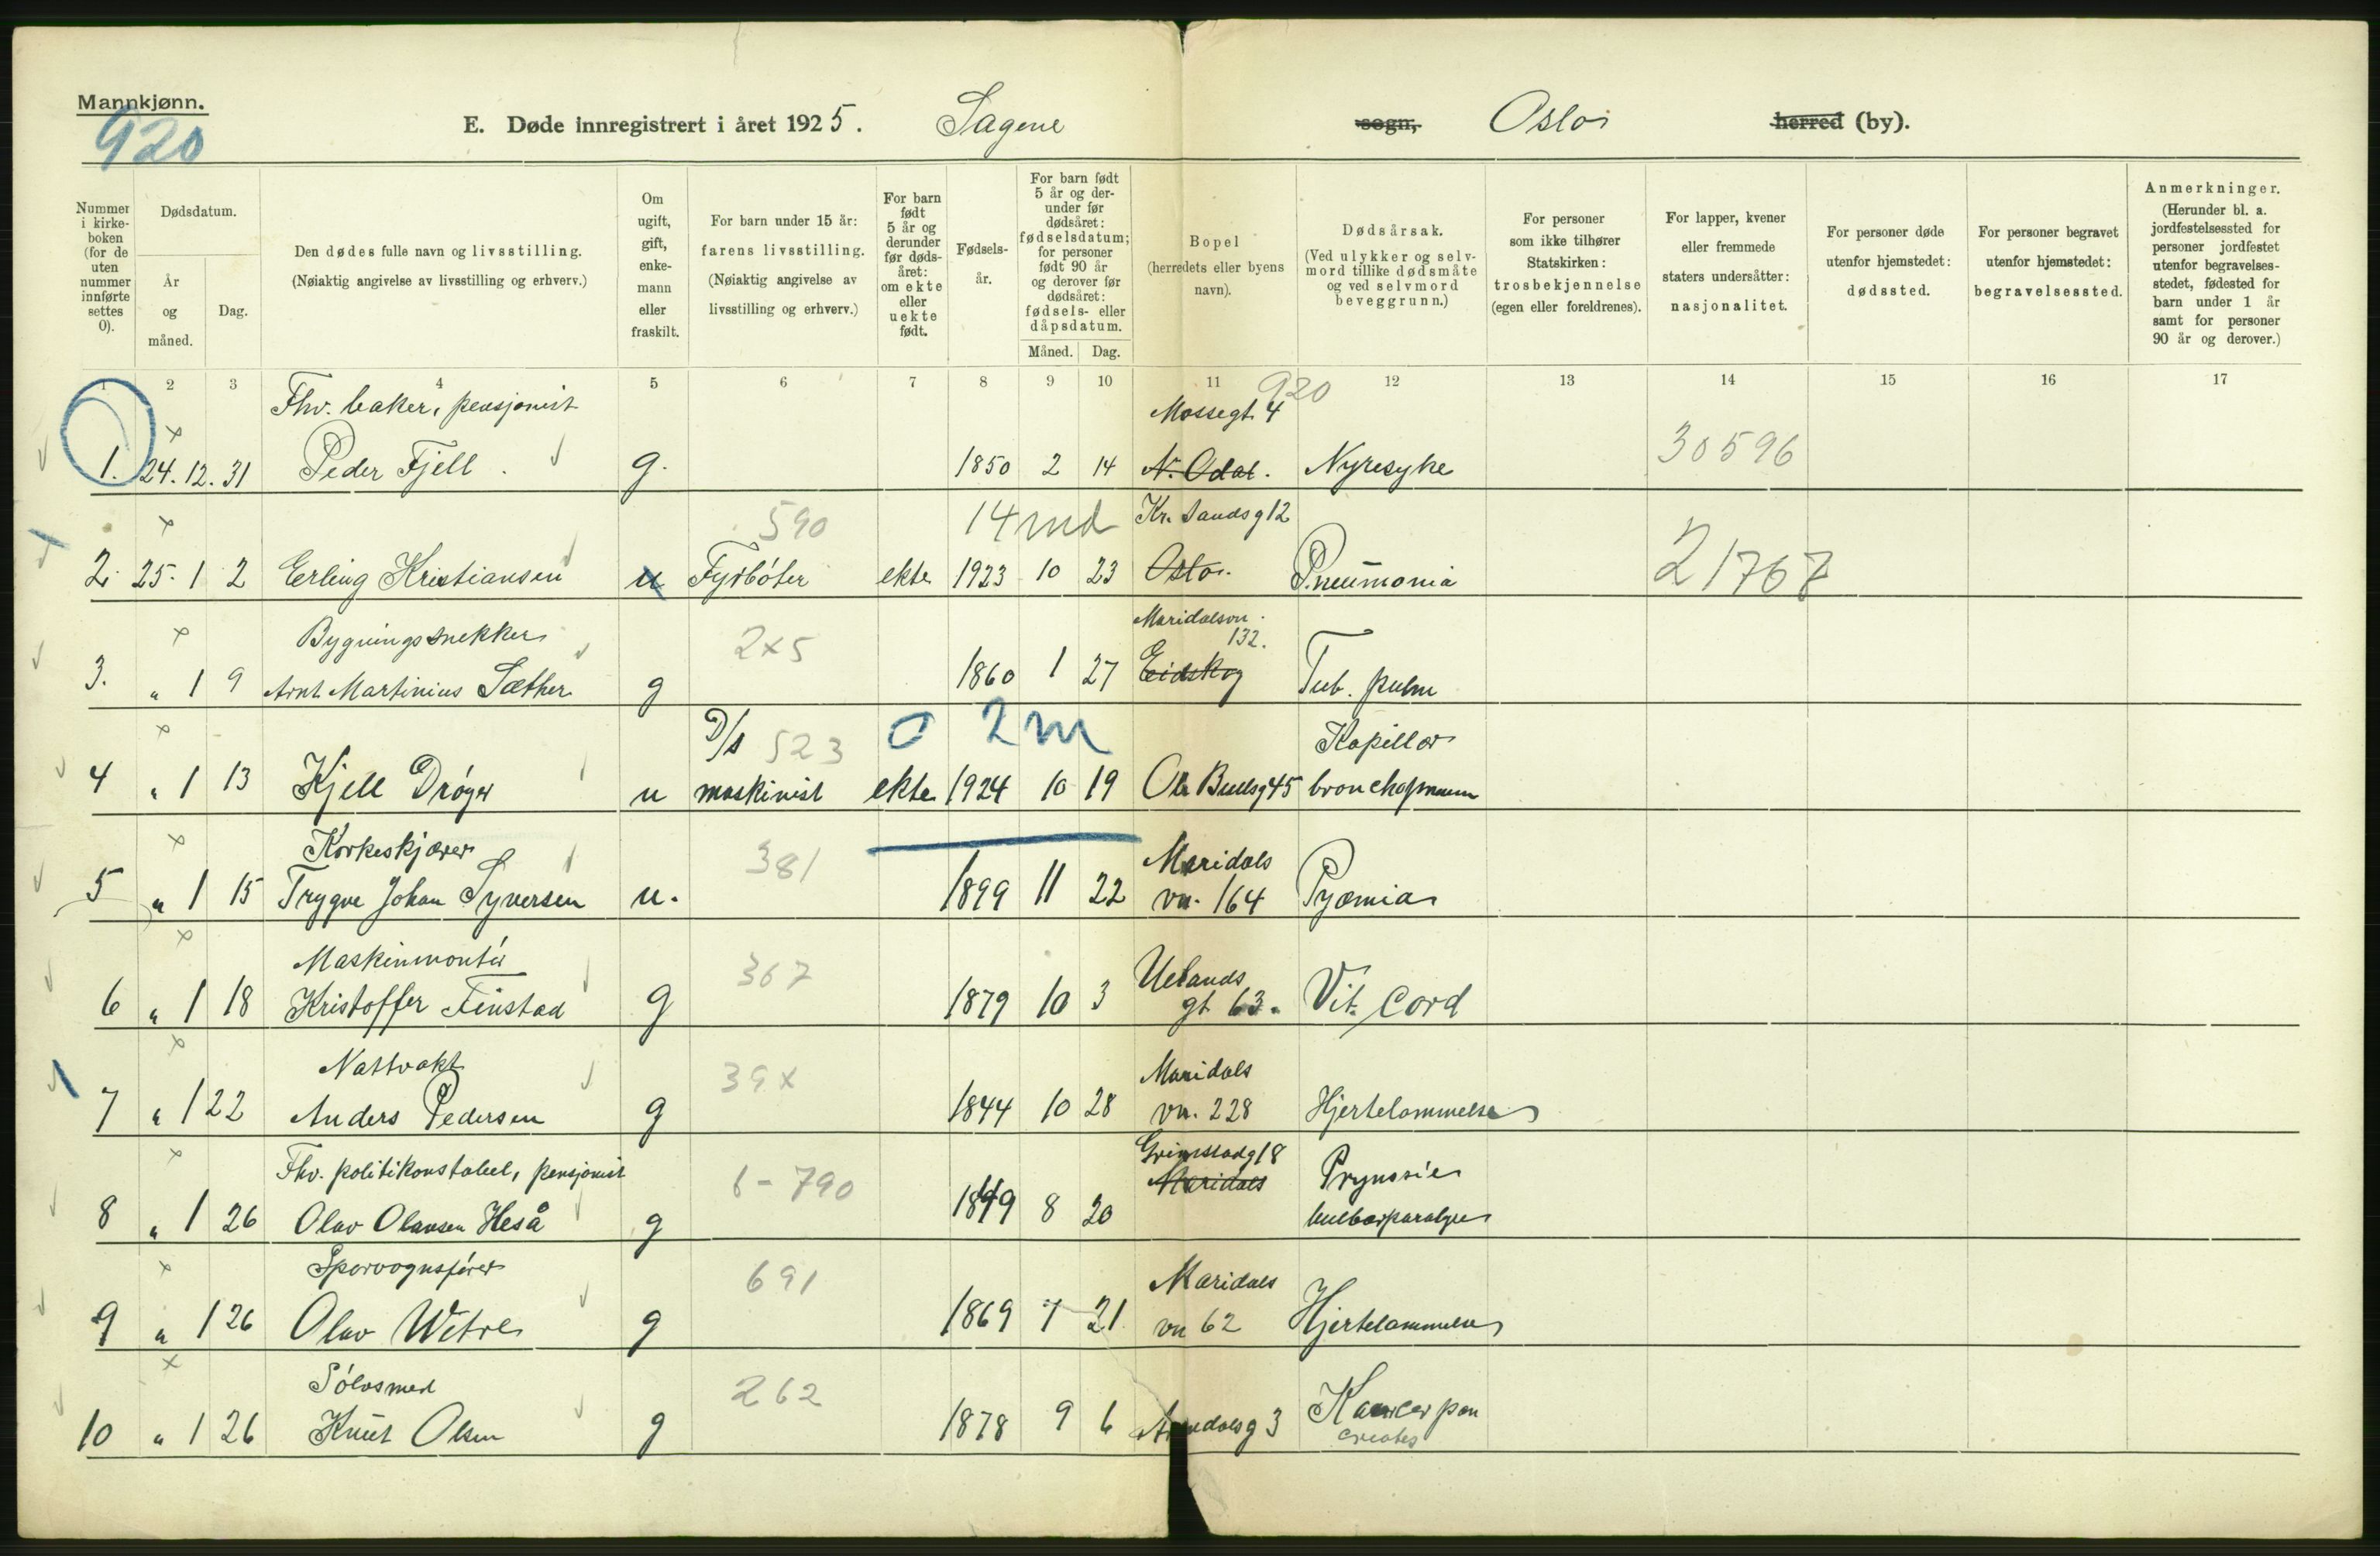 Mannkjønn.
920
E. Døde innregistrert i året 1925. Sagene sogn, Oslo herred (by).
Nummer i kirke-boken (for de uten nummer innførte settes 0).
Dødsdatum.
År og måned.
Dag.
Den dødes fulle navn og livsstilling.
(Nøiaktig angivelse av livsstilling og erhverv.)
Om ugift, gift, enke-mann eller fraskilt.
For barn under 15 år: farens livsstilling.
(Nøiaktig angivelse av livsstilling og erhverv.)
For barn født 5 år og derunder før døds-året: om ekte eller uekte født.
Fødsels-år.
For barn født 5 år og der-under før dødsåret: fødselsdatum; for personer født 90 år og derover før dødsåret: fødsels- eller dåpsdatum.
Måned. Dag.
Bopel (herredets eller byens navn).
Dødsårsak.
(Ved ulykker og selv-mord tillike dødsmåte og ved selvmord beveggrunn.)
For personer som ikke tilhører Statskirken: trosbekjennelse (egen eller foreldrenes).
For lapper, kvener eller fremmede staters undersåtter: nasjonalitet.
For personer døde utenfor hjemstedet: dødssted.
For personer begravet utenfor hjemstedet: begravelsessted.
Anmerkninger.
(Herunder bl. a. jordfestelsessted for personer jordfestet utenfor begravelses-stedet, fødested for barn under 1 år samt for personer 90 år og derover.)
1 2 3 4 5 6 7 8 9 10 11 12 13 14 15 16 17
Fhv. baker, pensjonist Mossegt. 4 920
1. 24. 12. 31 Peder Fjell. g. 1850 2 14 N. Odal. Nyresyke 30596
590 14 md Kr. Sandsg 12
2. 25. 1 2 Erling Kristiansen u Fyrbøter ekte 1923 10 23 Oslo. Pneumonia 21767
Bygningssnekker 2x5 Maridalsvn. 132.
3. " 1 9 Arnt Martinius Sæther g 1860 1 27 Eidskog Tub. pulm
D/s 523 0 2m Kapillær
4 " 1 13 Kjell Dröger u maskinist ekte 1924 10 19 Ole Bullsg 45 bronchopneum
Korkeskjærer 381 Maridals
5 " 1 15 Trygve Johan Syversen u. 1899 11 22 vn. 164 Pyæmia
Maskinmontör 367 Uelands
6 " 1 18 Kristoffer Finstad g 1879 10 3 gt 63. Vit. Cord
Nattvakt 39x Maridals
7 " 1 22 Anders Pedersen g 1844 10 28 vn. 228 Hjertelammelse
Fhv. politikonstabel, pensjonist 6-790 Grimstadg 18 Maridals
8 " 1 26 Olav Olausen Heså g 1849 8 20 bulbærparalyse
Sporvognsfører 691 Maridals
9 " 1 26 Olav Wetre g 1869 7 21 vn 62 Hjertelammelse
Sölvsmed 262
10 " 1 26 Knut Olsen g 1878 9 6 Arendalsg 3 Kancer pan
creates